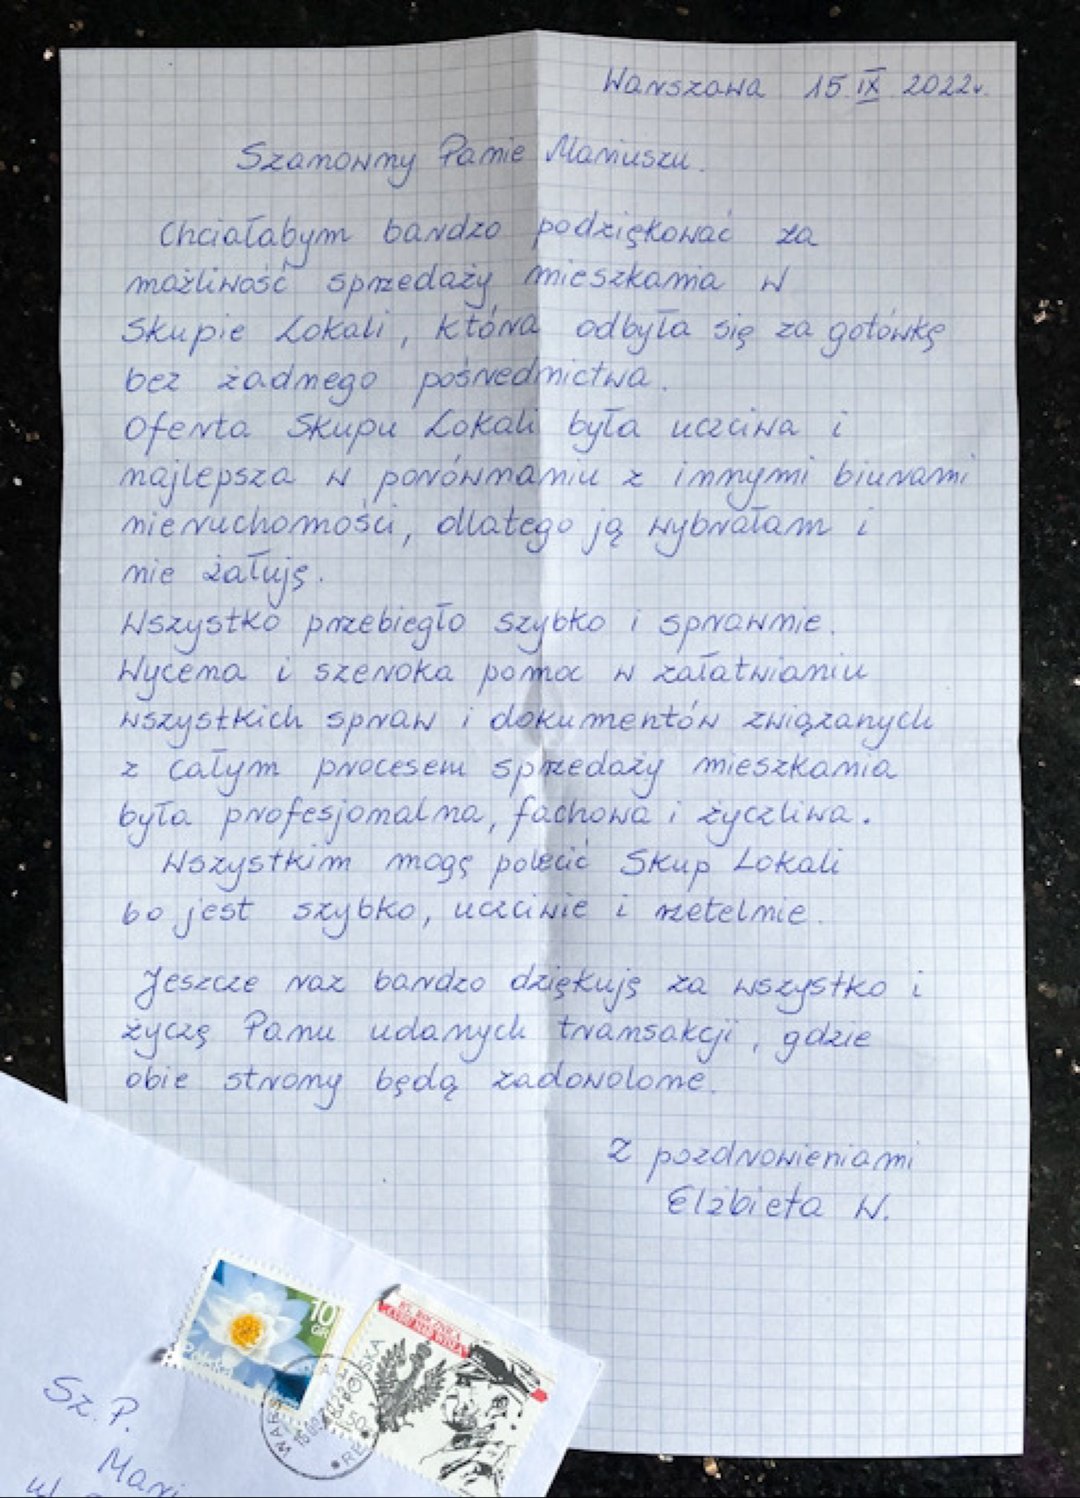 Warszawa 15 IX 2022r.
Szanowny Panie Mariuszu.
Chciałabym bardzo podziękować za
możliwość sprzedaży mieszkania w
Skupie Lokali, która odbyła się za gotówkę
bez żadnego pośrednictwa.
Oferta Skupu Lokali była uczciwa i
najlepsza w porównaniu z innymi biurami
nieruchomości, dlatego ją wybrałam i
nie żałuję.
Wszystko przebiegło szybko i sprawnie.
Wycena i szeroka pomoc w załatwianiu
wszystkich spraw i dokumentów związanych
z całym procesem sprzedaży mieszkania
była profesjonalna, fachowa i życzliwa.
Wszystkim mogę polecić Skup Lokali
bo jest szybko, uczciwie i rzetelnie.
Jeszcze raz bardzo dziękuję za wszystko i
życzę Panu udanych transakcji, gdzie
obie strony będą zadowolone.
Z pozdrowieniami
Elżbieta W.
10
GR
Polska
Sz. P.
Mari
ul.